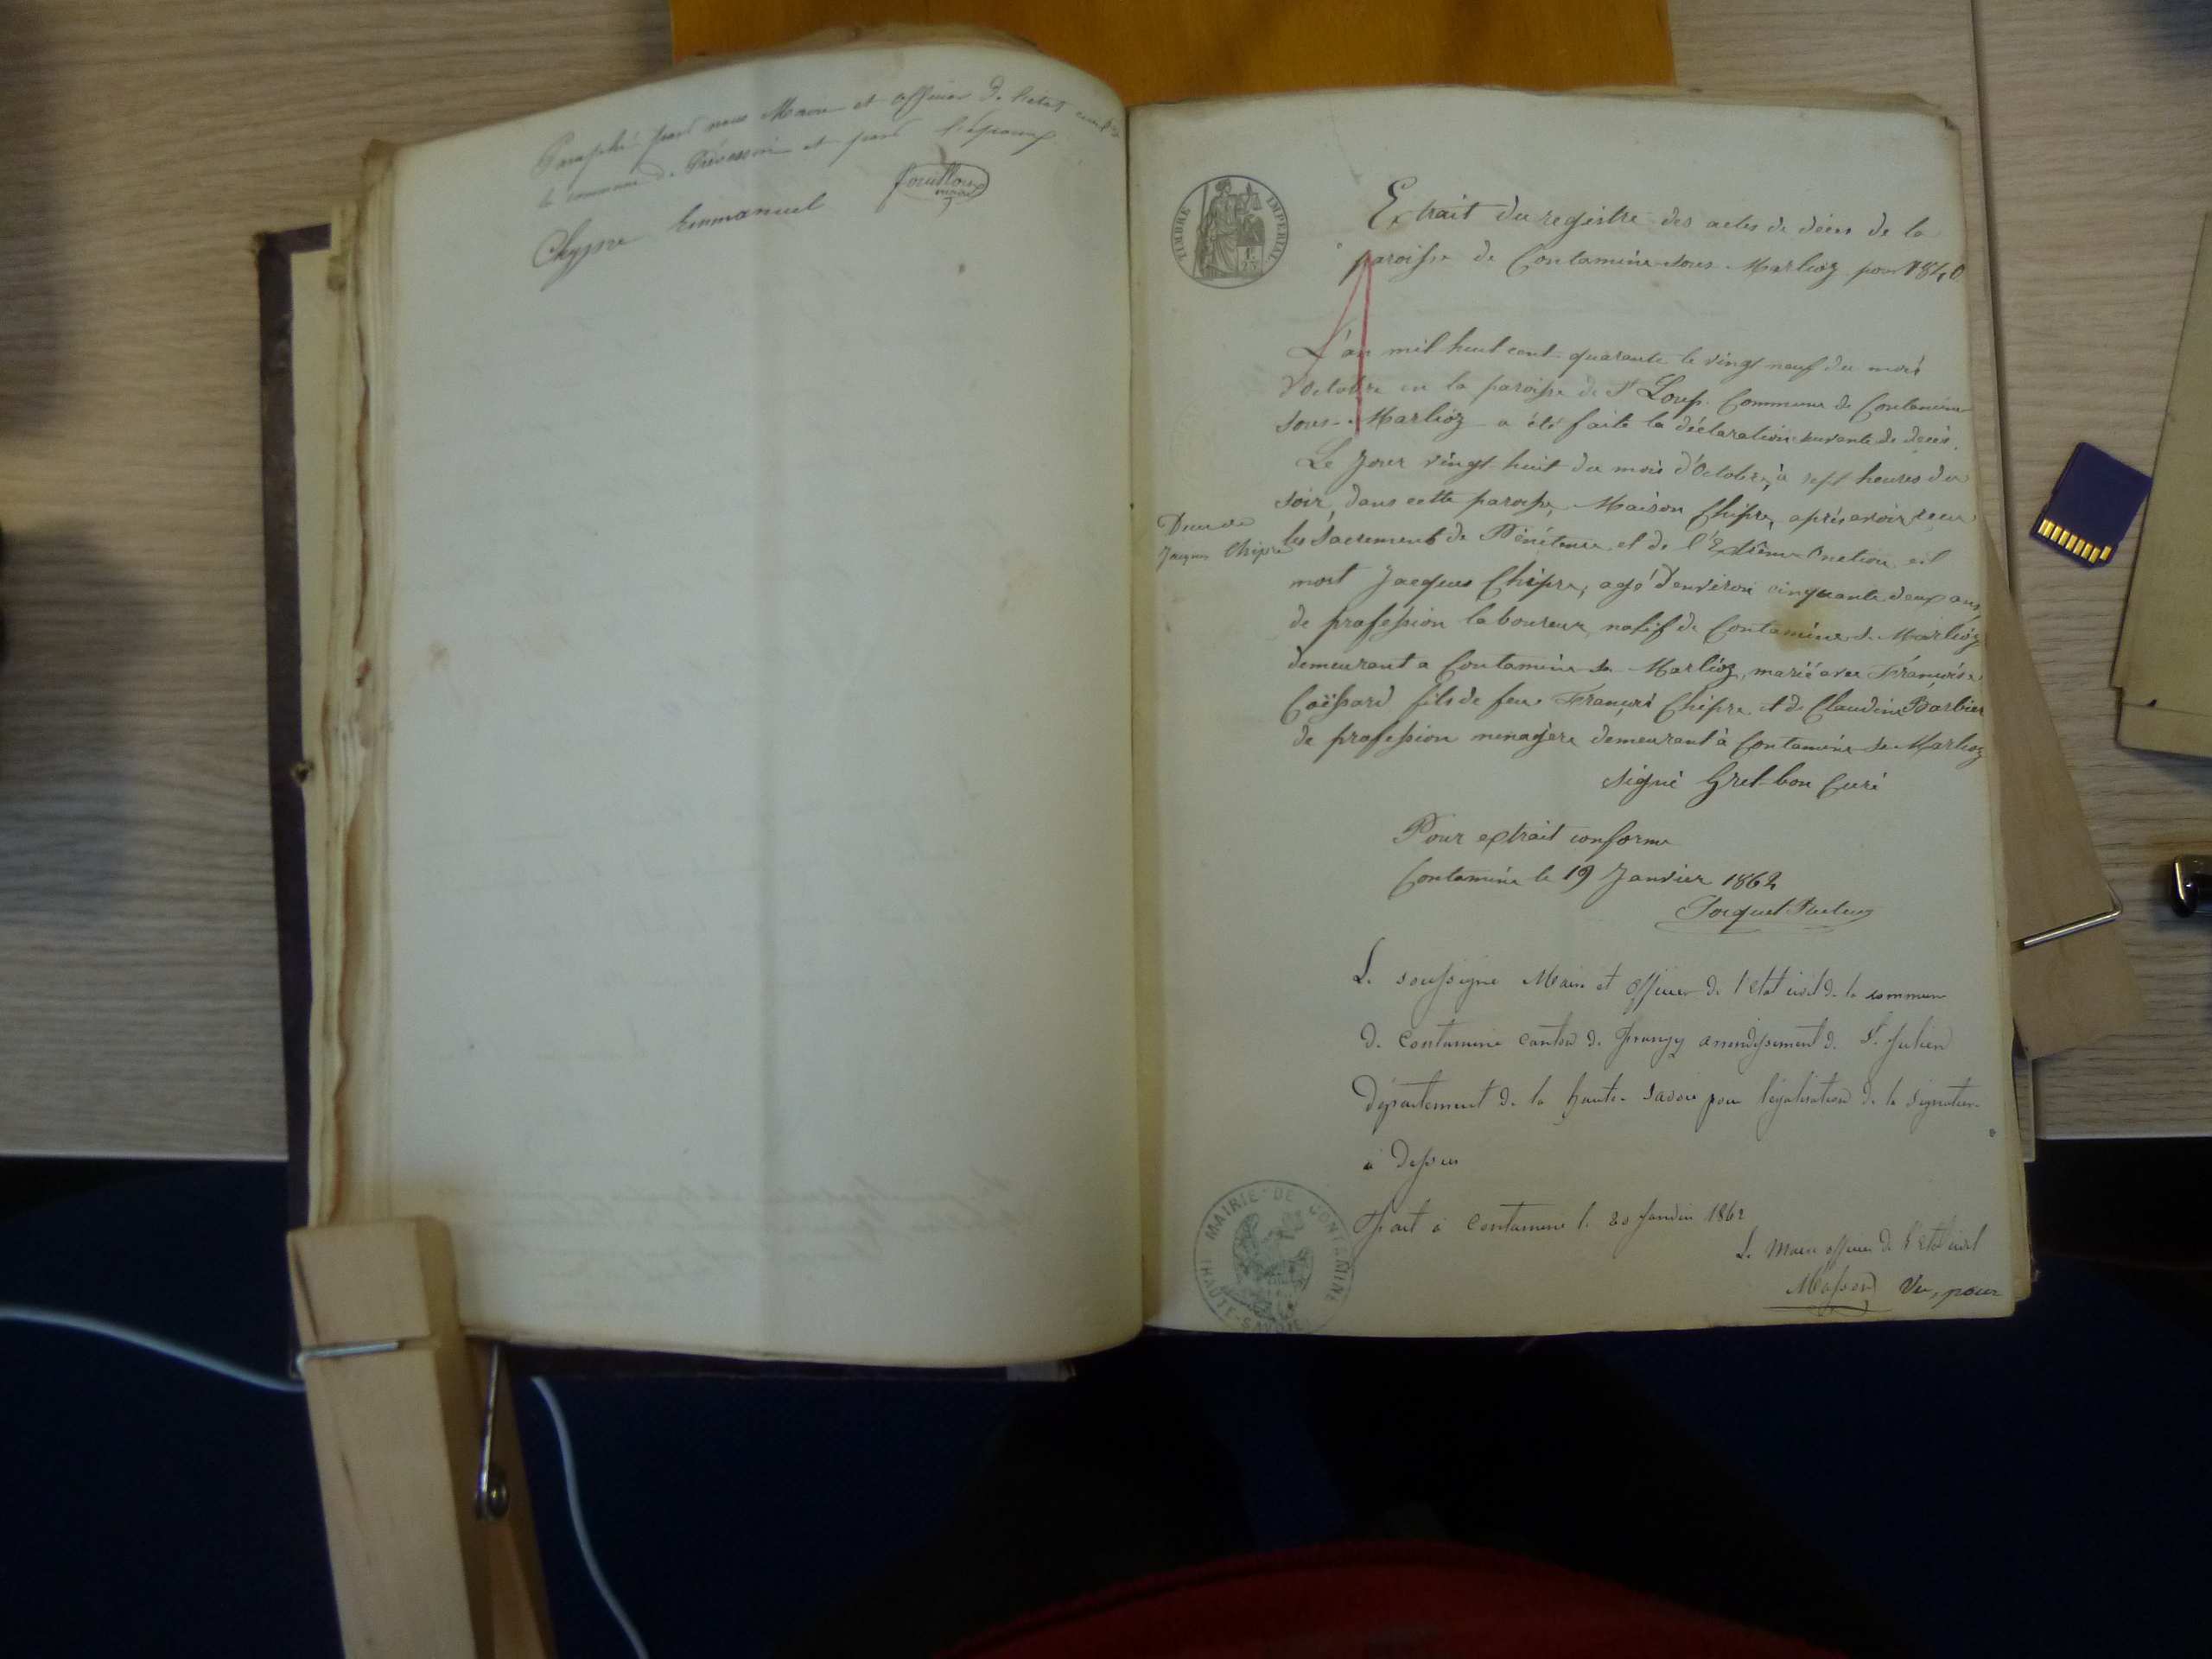 Paraphé par nous Maire et officier de l'etat civil de
la commune de Prévessin et par l'époux
Chypre Emmanuel
fouilloux
maire
TIMBRE IMPERIAL
Extrait du registre des actes de décès de la
paroisse de Contamine sous Marlioz pour 1840
L'an mil huit cent quarante le vingt neuf du mois
d'octobre en la paroisse de St Loup Commune de Contamine
sous-Marlioz a été faite la déclaration suivante de decès.
Le Jour vingt huit du mois d'Octobre, à sept heures du
soir, dans cette paroisse, Maison Chipre, après avoir recu
Jacques Chipre
les Sacrements de Pénitence et de l'Extrême Onction est
mort Jacques Chipre, agé d'environ cinquante deux ans,
de profession laboureur, natif de Contamine s. Marlioz
demeurant a Contamine s. Marlioz, marié avec Françoise
fils de feu François Chipre et de Claudine Barbier
de profession menagère demeurant à Contamine s. Marlioz
Signé Curé
Pour extrait conforme
Contamine le 19 Janvier 1862
L. soussigné Maire et officier de l'etat civil de la commune
de Contamine canton de frangy arrondissement de St. Julien
Département de la haute-Savoie pour légalisation de la signature
ci Dessus
Fait à Contamine le 20 Janvier 1862
Le Maire officier de l'etat civil
Vu, pour
MAIRIE DE CONTAMINE
(HAUTE-SAVOIE